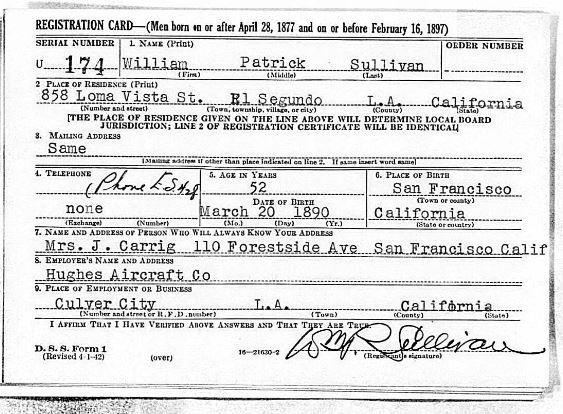 REGISTRATION CARD—(Men born on or after April 28, 1877 and on or before February 16, 1897)
SERIAL NUMBER 1. NAME (Print) ORDER NUMBER
U 174 William Patrick Sullivan
(First) (Middle) (Last)
2 PLACE OF RESIDENCE (Print)
858 Loma Vista St. El Segundo L.A. California
(Number and street) (Town, township, village, or city) (County) (State)
[THE PLACE OF RESIDENCE GIVEN ON THE LINE ABOVE WILL DETERMINE LOCAL BOARD
JURISDICTION; LINE 2 OF REGISTRATION CERTIFICATE WILL BE IDENTICAL]
3. MAILING ADDRESS
Same
[Mailing address if other than place indicated on line 2. If same insert word same]
4. TELEPHONE 5. AGE IN YEARS 6. PLACE OF BIRTH
(Phone 52 San Francisco
DATE OF BIRTH (Town or county)
none March 20 1890 California
(Exchange) (Number) (Mo.) (Day) (Yr.) (State or country)
7. NAME AND ADDRESS OF PERSON WHO WILL ALWAYS KNOW YOUR ADDRESS
Mrs. J. Carrig 110 Forestside Ave San Francisco Calif
8. EMPLOYER'S NAME AND ADDRESS
Hughes Aircraft Co
9. PLACE OF EMPLOYMENT OR BUSINESS
Culver City L.A. California
(Number and street or R.F.D. number) (Town) (County) (State)
I AFFIRM THAT I HAVE VERIFIED ABOVE ANSWERS AND THAT THEY ARE TRUE.
D. S. S. Form 1 Wm P Sullivan
(Revised 4-1-42) (over) 16—21630-2 (Registrant's signature)